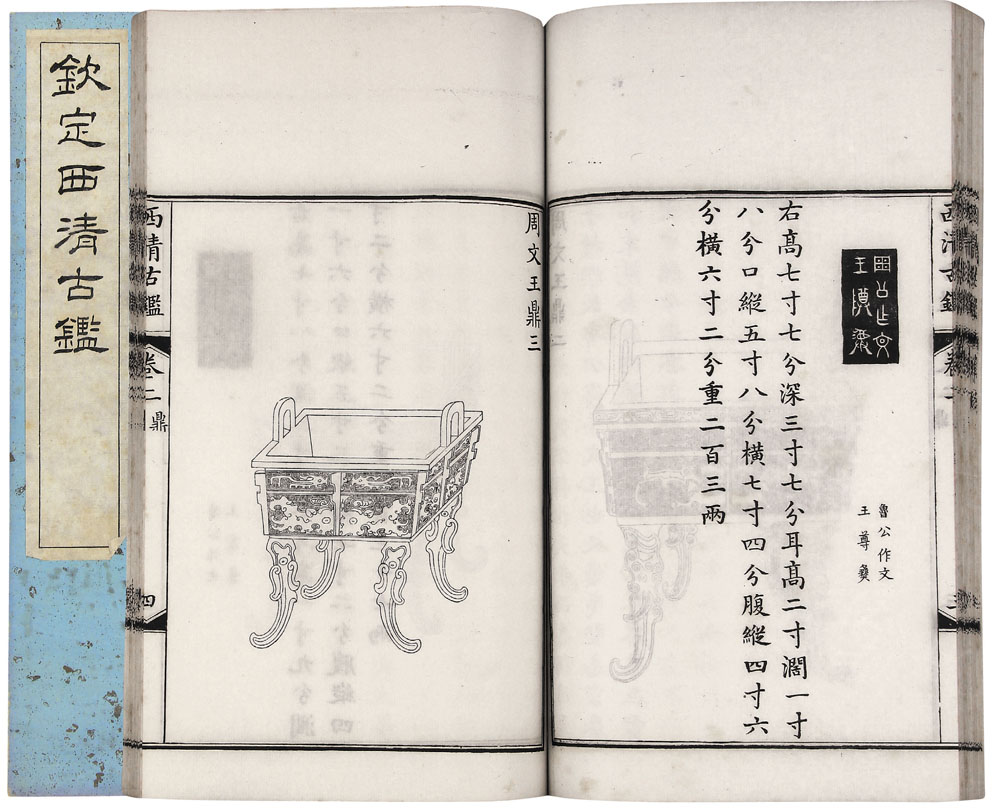 欽定西清古鑑
西清古鑑
卷二
三
魯公作文
王尊彝
右髙七寸七分深三寸七分耳髙二寸濶一寸
八分口縱五寸八分橫七寸四分腹縱四寸六
分橫六寸二分重二百三兩
周文王鼎三
西清古鑑
卷二 鼎
四